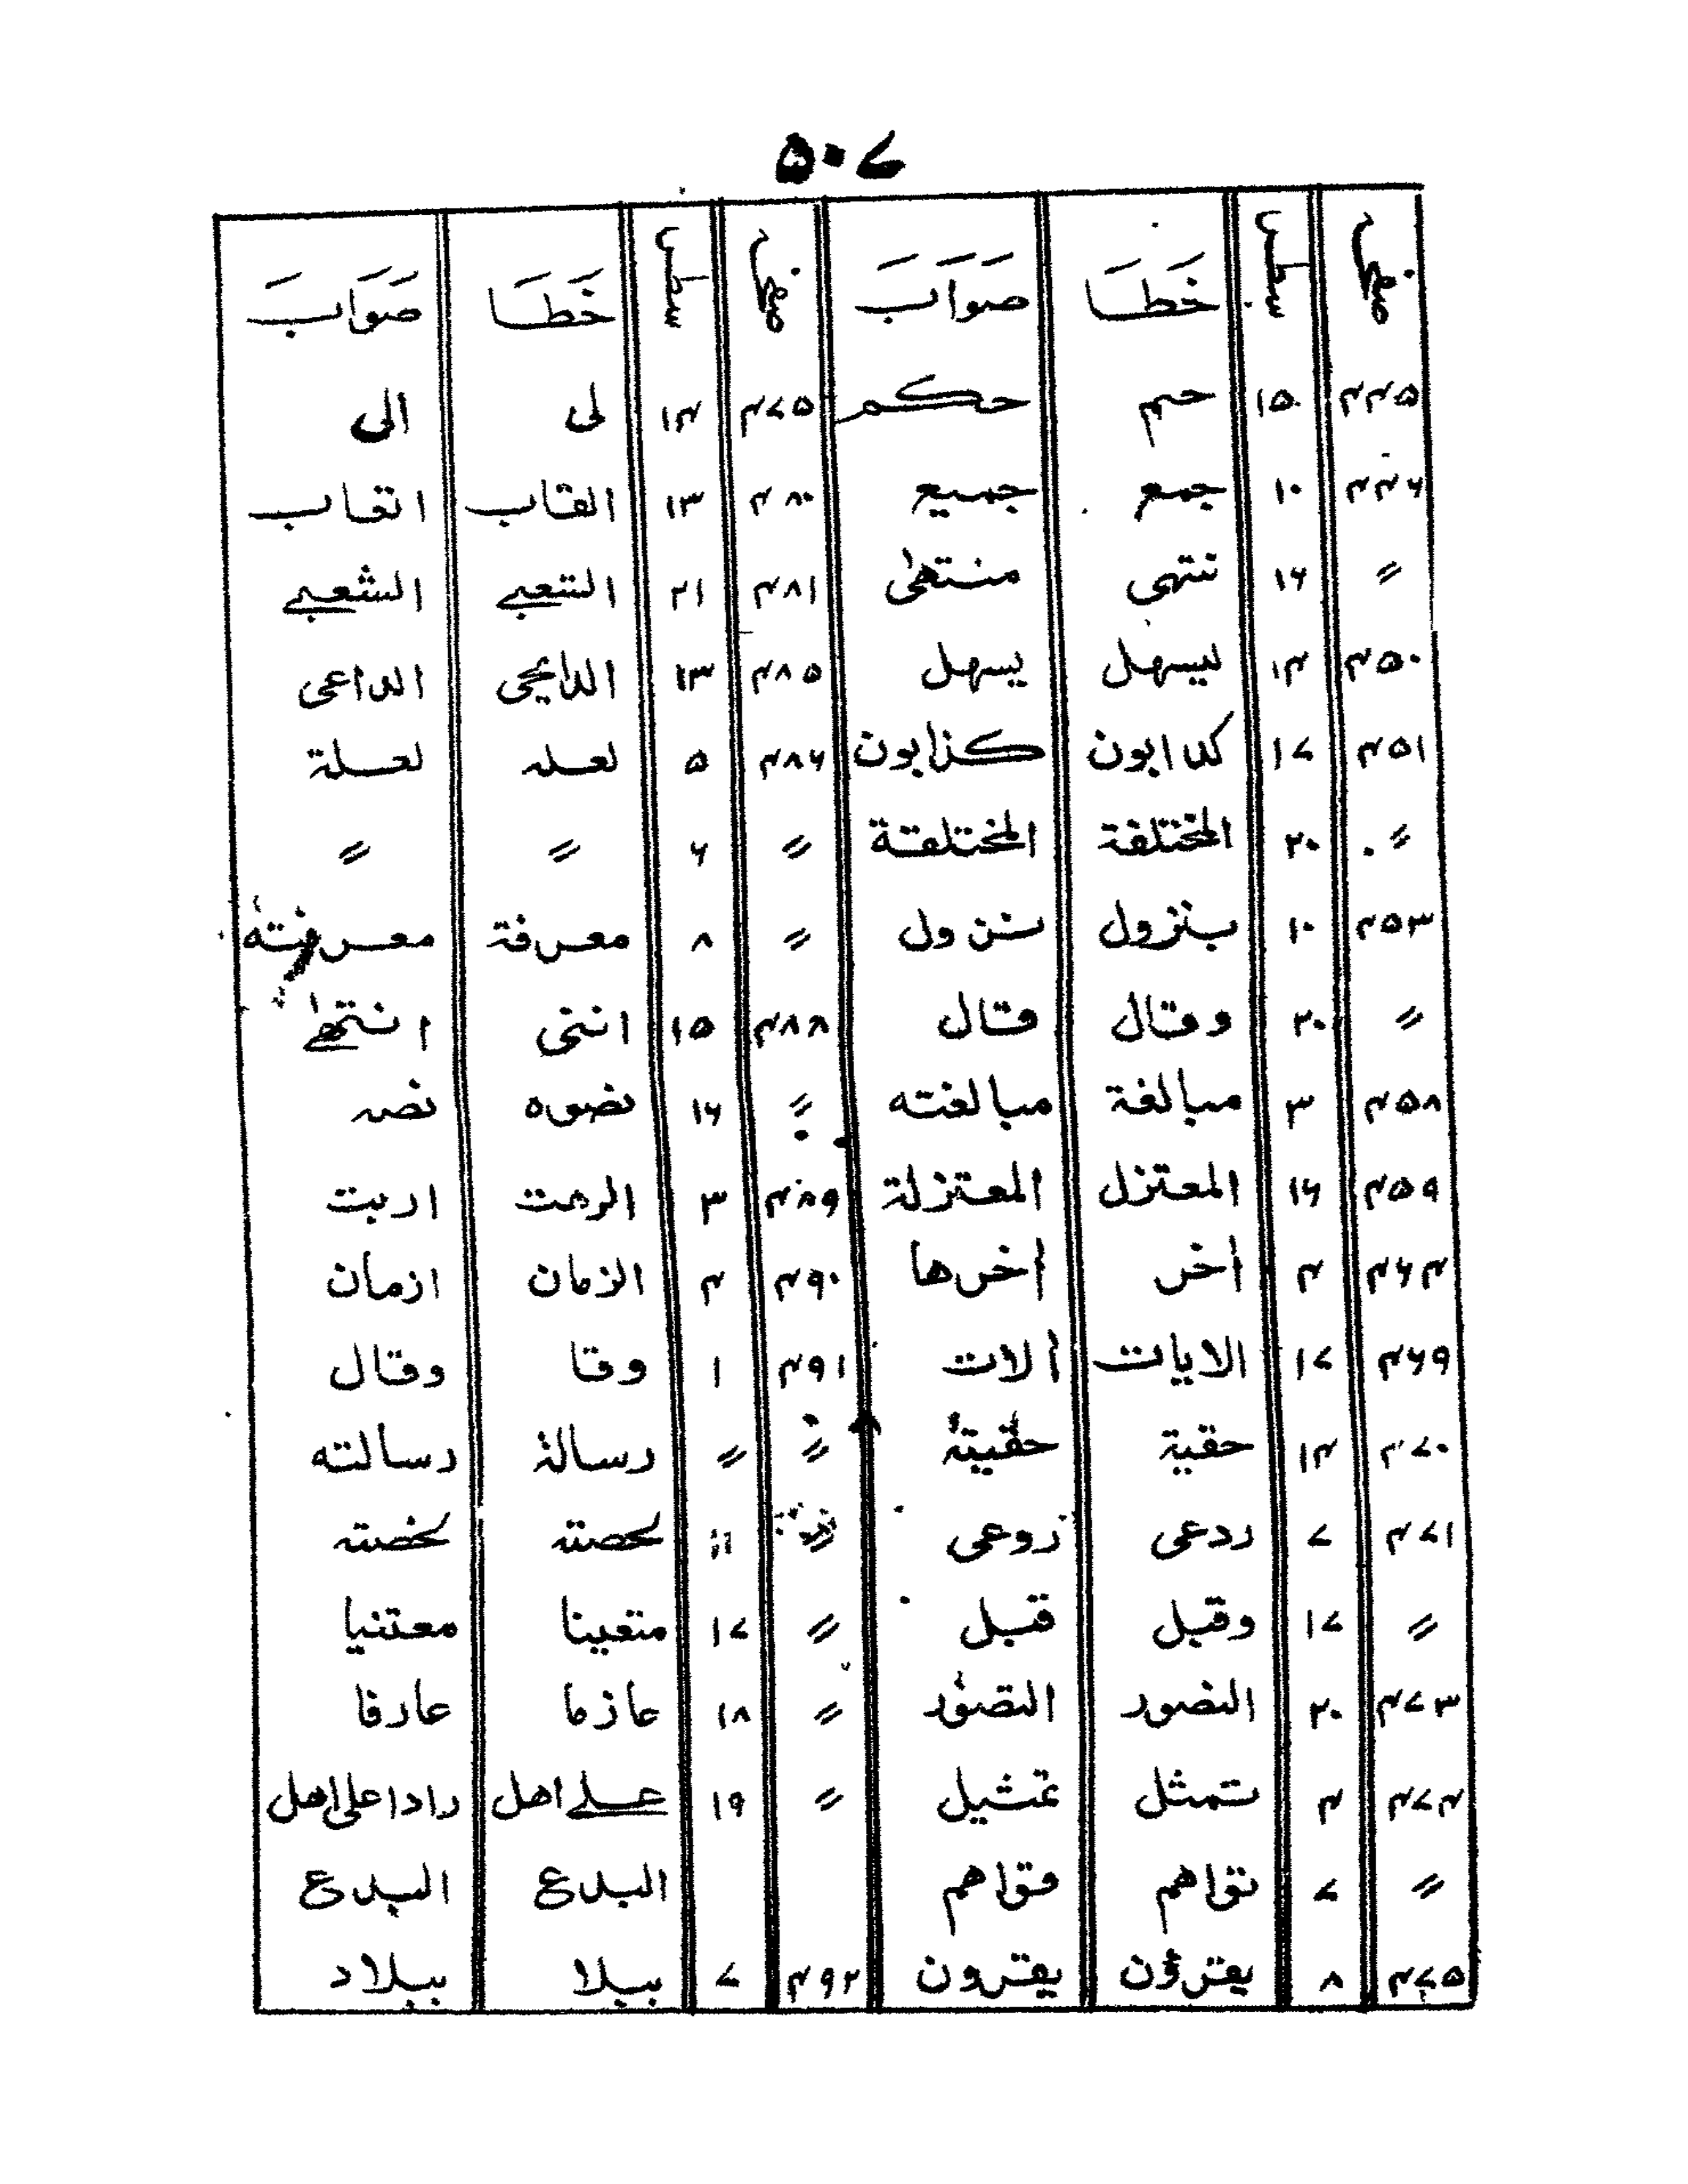 ۵۰۷
صفحہ سطر خَطَا صَوَاب صفحہ سطر خَطَا صَوَاب
۴۴۵ ۱۵ حم حکم ۴۷۵ ۱۴ لی الی
۴۴۶ ۱۰ جمع جمیع ۴۸۰ ۱۳ القاب اتعاب
〃 ۱۶ نتہی منتھیٰ ۴۸۱ ۲۱ التعبے الشعبے
۴۵۰ ۱۴ لیسہل یسہل ۴۸۵ ۱۳ الداعی
۴۵۱ ۱۷ کدابون کذابون ۴۸۶ ۵ لعلہ لعلۃ
〃 ۲۰ المختلفۃ المختلقة 〃 ۶ 〃 〃
۴۵۳ ۱۰ بنزول نزول 〃 ۸ معرفۃ معرفتہ
〃 ۲۰ وقال قال ۴۸۸ ۱۵ انتی انتھے
۴۵۸ ۳ مبالغۃ مبالغتہ 〃 ۱۶ نضوہ نصہ
۴۵۹ ۱۶ المعتزل المعتزلۃ ۴۸۹ ۳ اربت
۴۶۴ ۴ أخر أخرھا ۴۹۰ ۴ الزمان ازمان
۴۶۹ ۱۷ الایات ألات ۴۹۱ ۱ وقا وقال
۴۷۰ ۱۴ حقیۃ 〃 〃 رسالۃ رسالتہ
۴۷۱ ۷ ردعی زوعی 〃
〃 ۱۷ وقبل قبل 〃 ۱۷ متعینا معتنیا
۴۷۳ ۲۰ النصور التصوّر 〃 ۱۸ عازما عارفا
۴۷۴ ۴ تمثل تمثیل 〃 ۱۹ علے اھل رادا علی اھل
〃 ۷ تقواھم فقواھم البدع البدع
۴۷۵ ۸ یقرؤن یقرون ۴۹۲ ۷ ببلا ببلاد